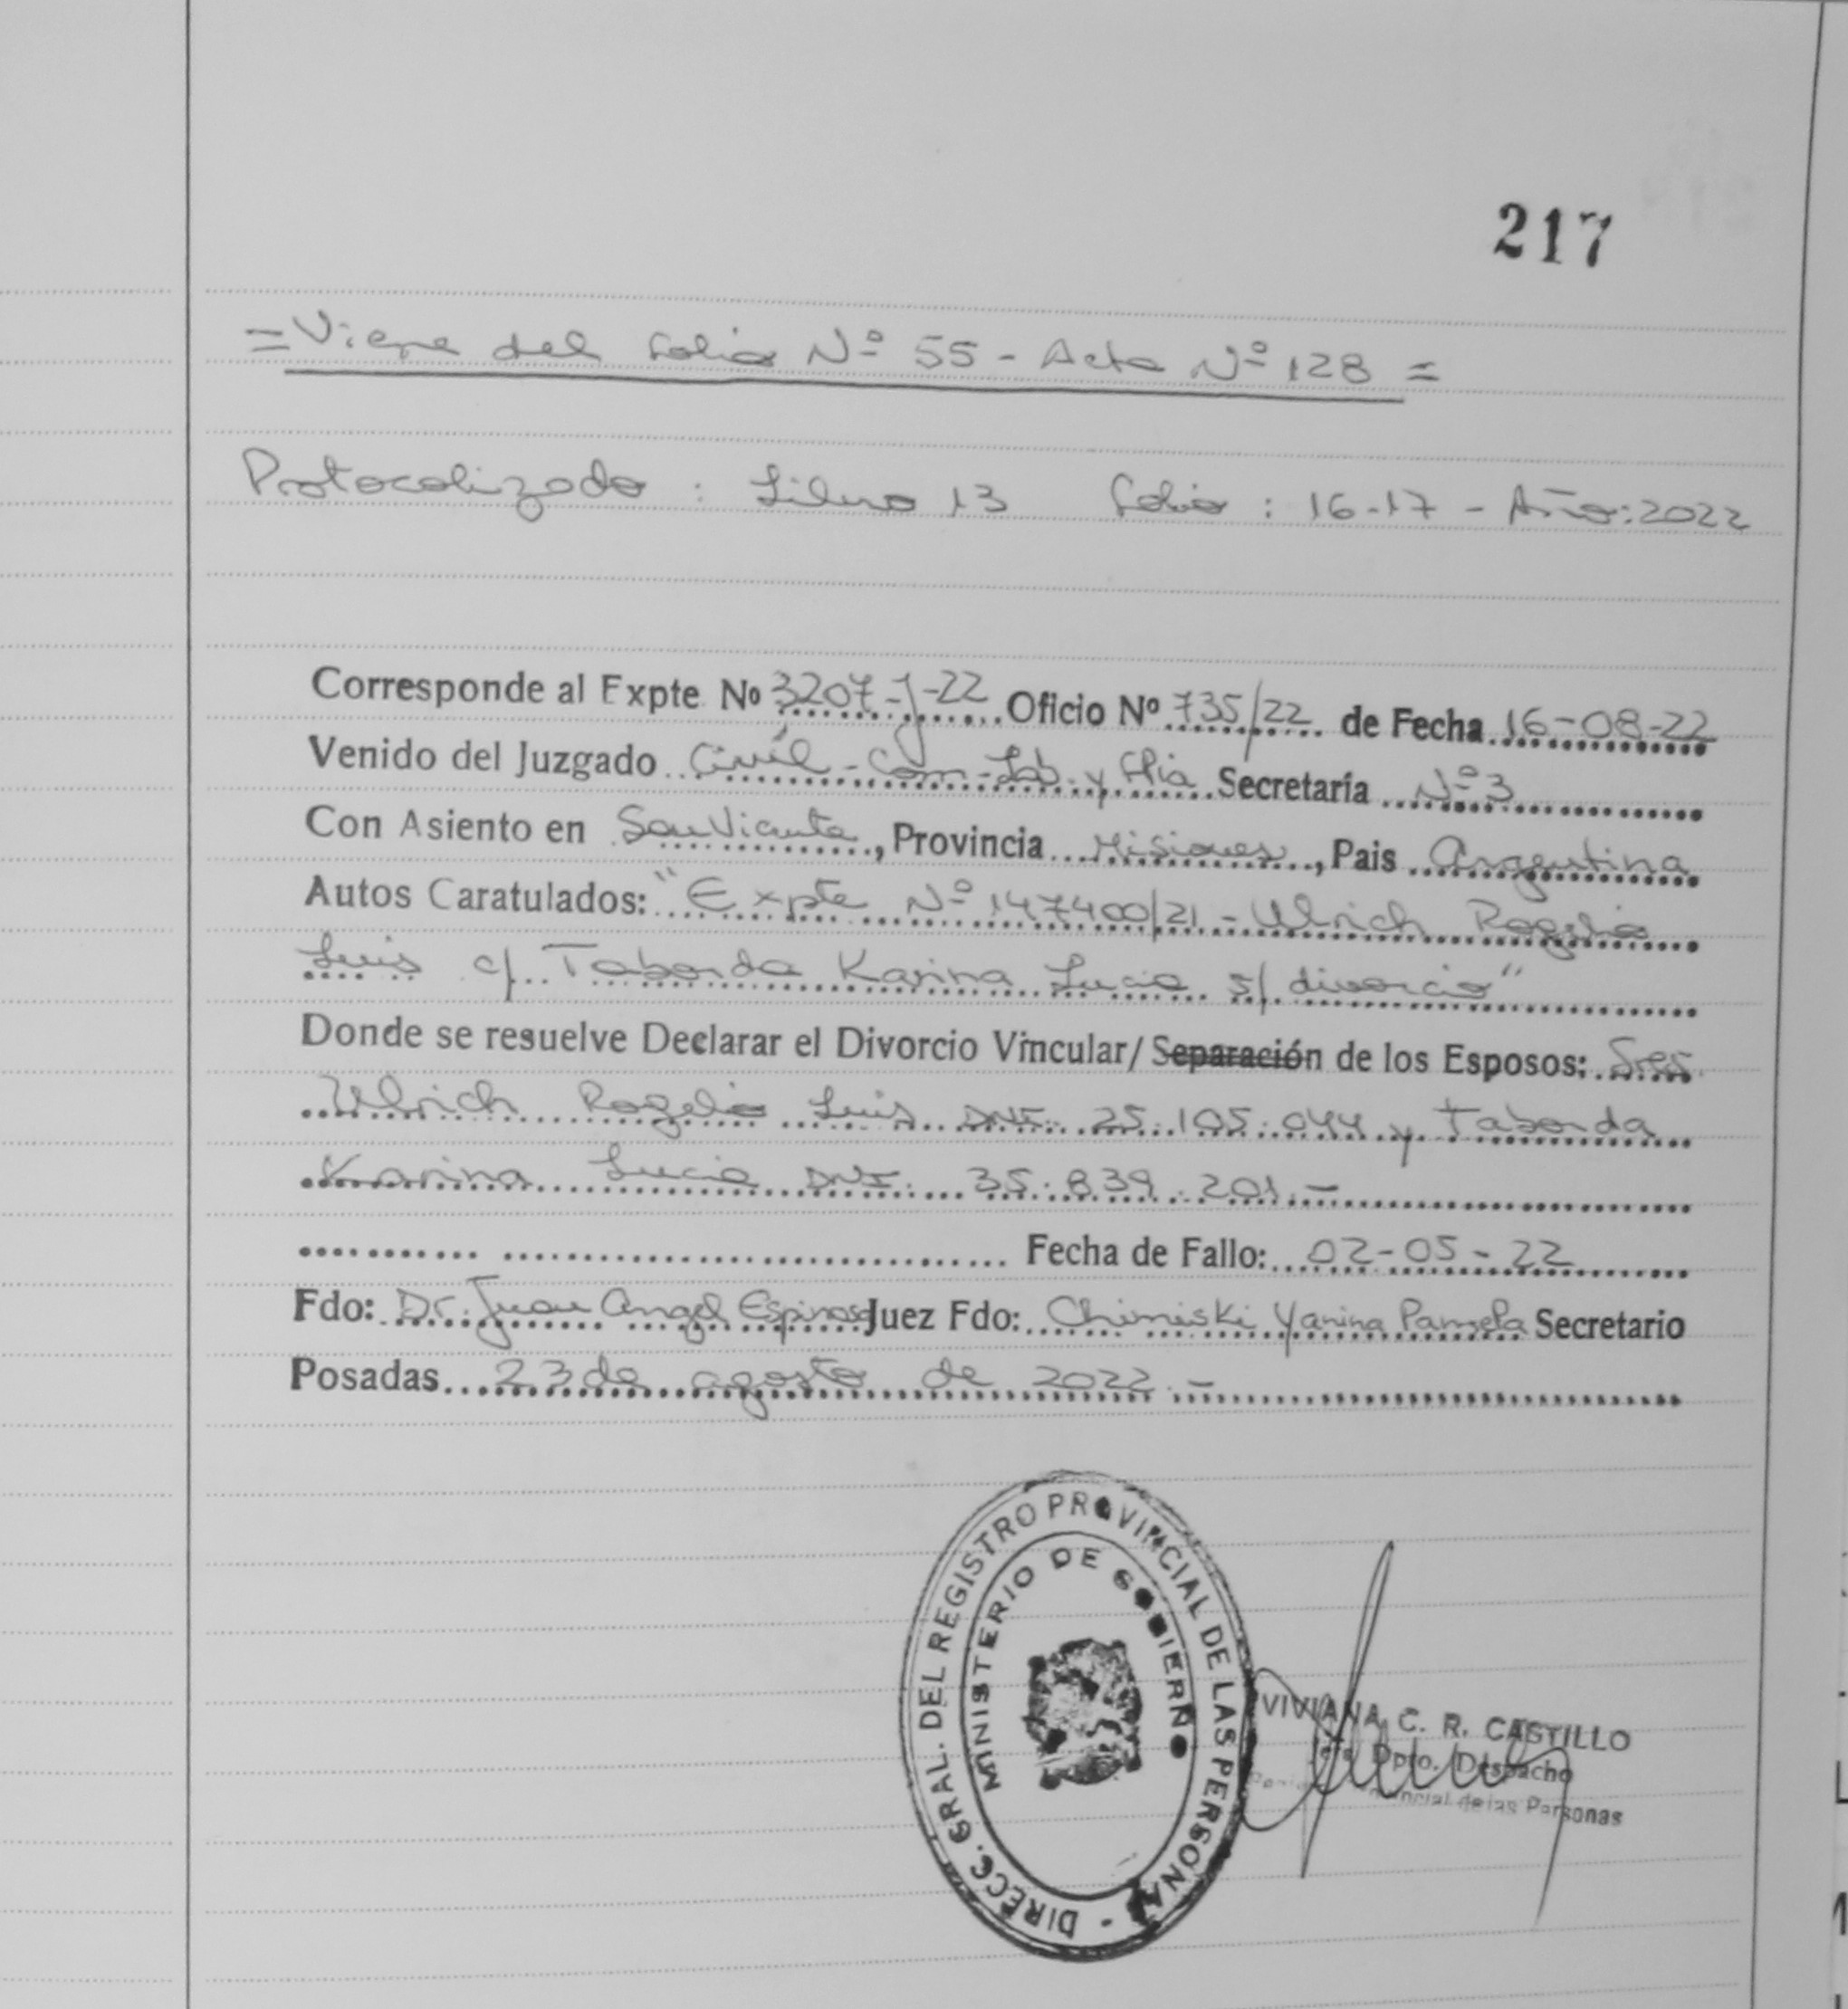 217
= Viene del folio Nº 55 - Acta Nº 128 =
Protocolizado : Libro 13 folio : 16-17 - Año: 2022
Corresponde al Expte Nº 3207-J-22 Oficio Nº 735/22 de Fecha 16-08-22
Venido del Juzgado Civil - Com - Lab. y Flia Secretaría Nº 3
Con Asiento en San Vicente, Provincia Misiones, Pais Argentina
Autos Caratulados: "Expte Nº 147400/21 - Ulrich Rogelio
Luis c/ Taborda Karina Lucia s/ divorcio"
Donde se resuelve Declarar el Divorcio Vincular/ Separación de los Esposos: Sres.
Ulrich Rogelio Luis DNI: 25.105.044 y Taborda
Karina Lucia DNI: 35.839.201.-
Fecha de Fallo: 02-05-22
Fdo: Dr. Juan Angel Espinosa Juez Fdo: Chimiski Yanina Pamela Secretario
Posadas 23 de agosto de 2022.-
DIRECC. GRAL. DEL REGISTRO PROVINCIAL DE LAS PERSONAS -
MINISTERIO DE GOBIERNO
VIVIANA C. R. CASTILLO
Dpto. Despacho
Provincial de las Personas